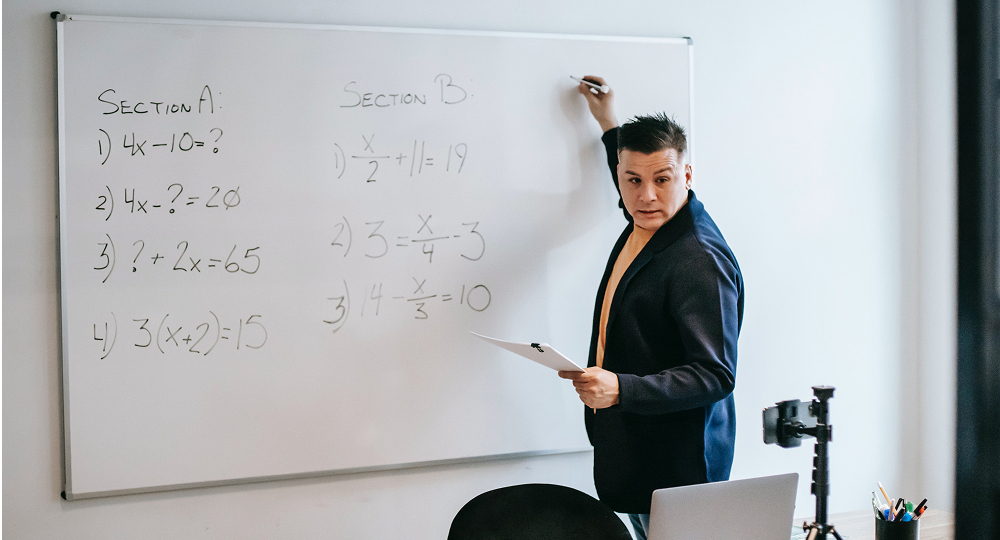 SECTION A:
1) 4x-10=?
2) 4x-?=20
3) ?+2x=65
4) 3(x+2)=15
SECTION B:
1) x/2+11=19
2) 3=x/4-3
3) 14-x/3=10